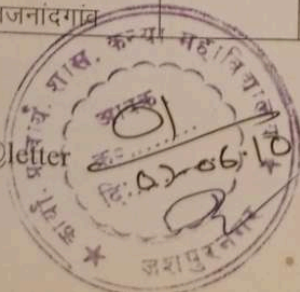 जनांदगांव
letter
कार्या. प्राचार्य. शास. कन्या महाविद्यालय
आवक
क्र. 01
दि. 02-06-10
जशपुरनगर